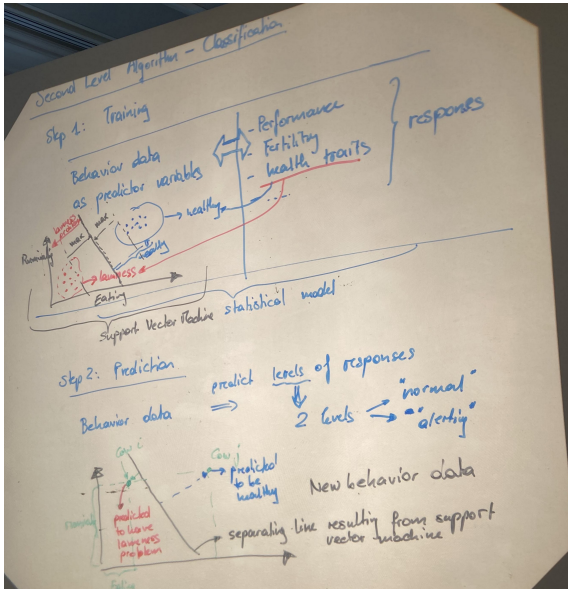 Second Level Algorithm - Classification
Step 1: Training
Behavior data
as predictor variables
- Performance
- Fertility
- health traits
responses
healthy
max
max
healthy
Ruminating
lameness
Eating
Support Vector Machine
statistical model
Step 2: Prediction
predict levels of responses
Behavior data ⇒
2 levels
"normal"
"alerting"
Cow i
Cow j
predicted
to be
healthy
New behavior data
predicted
to have
lameness
problem
separating line resulting from support
vector machine
Eating